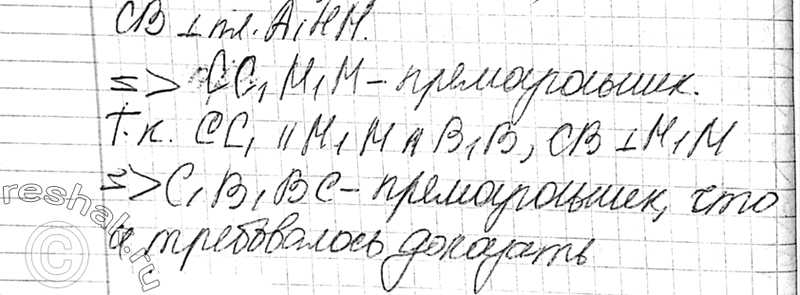 CB ⊥ пл. A₁HM.
=> CC₁M₁M – прямоугольник.
Т.к. CC₁ || M₁M || B₁B, CB ⊥ M₁M
=> C₁B₁BC – прямоугольник, что
и требовалось доказать
reshak.ru